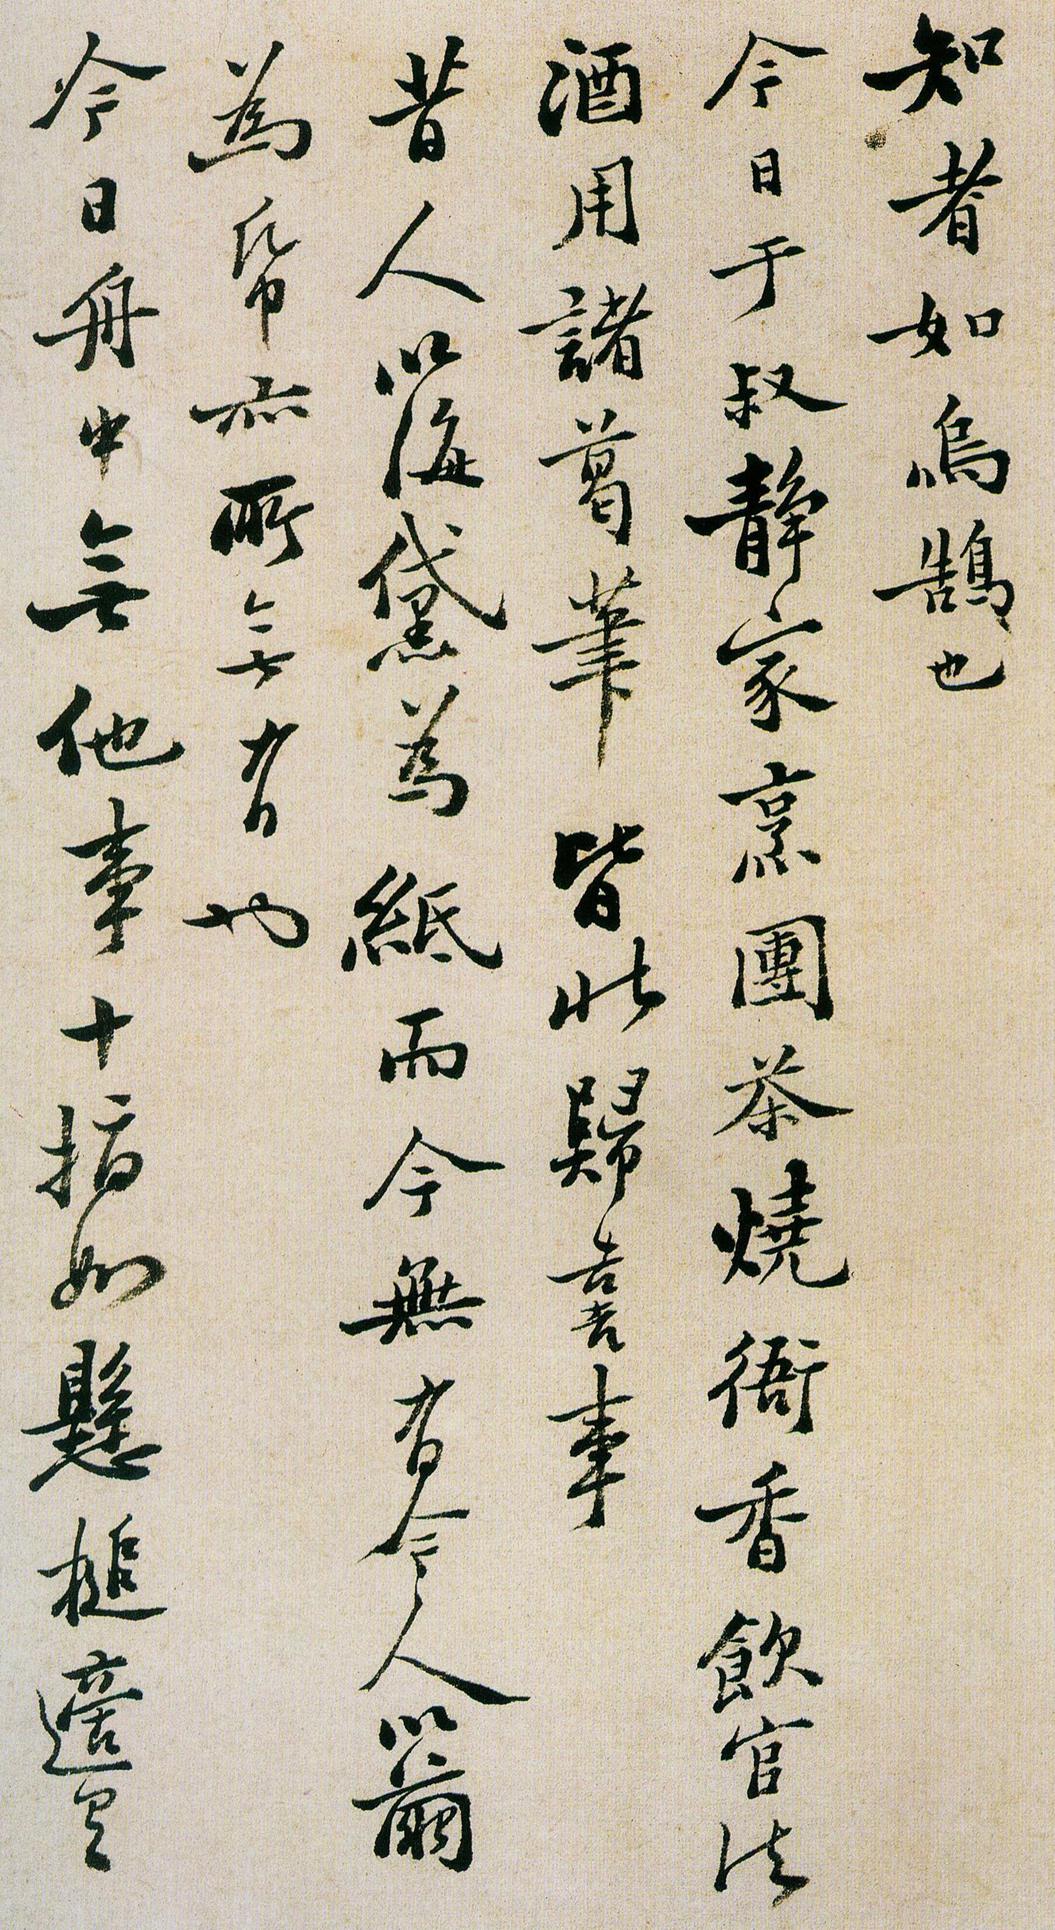 知者如烏鵲也
今日于叔静家烹團茶燒衙香飲官法
酒用諸葛筆皆北歸喜事
昔人以海苔為紙而今無有今人以繭
為帋亦所無有也
今日舟中無他事十指如懸槌適有